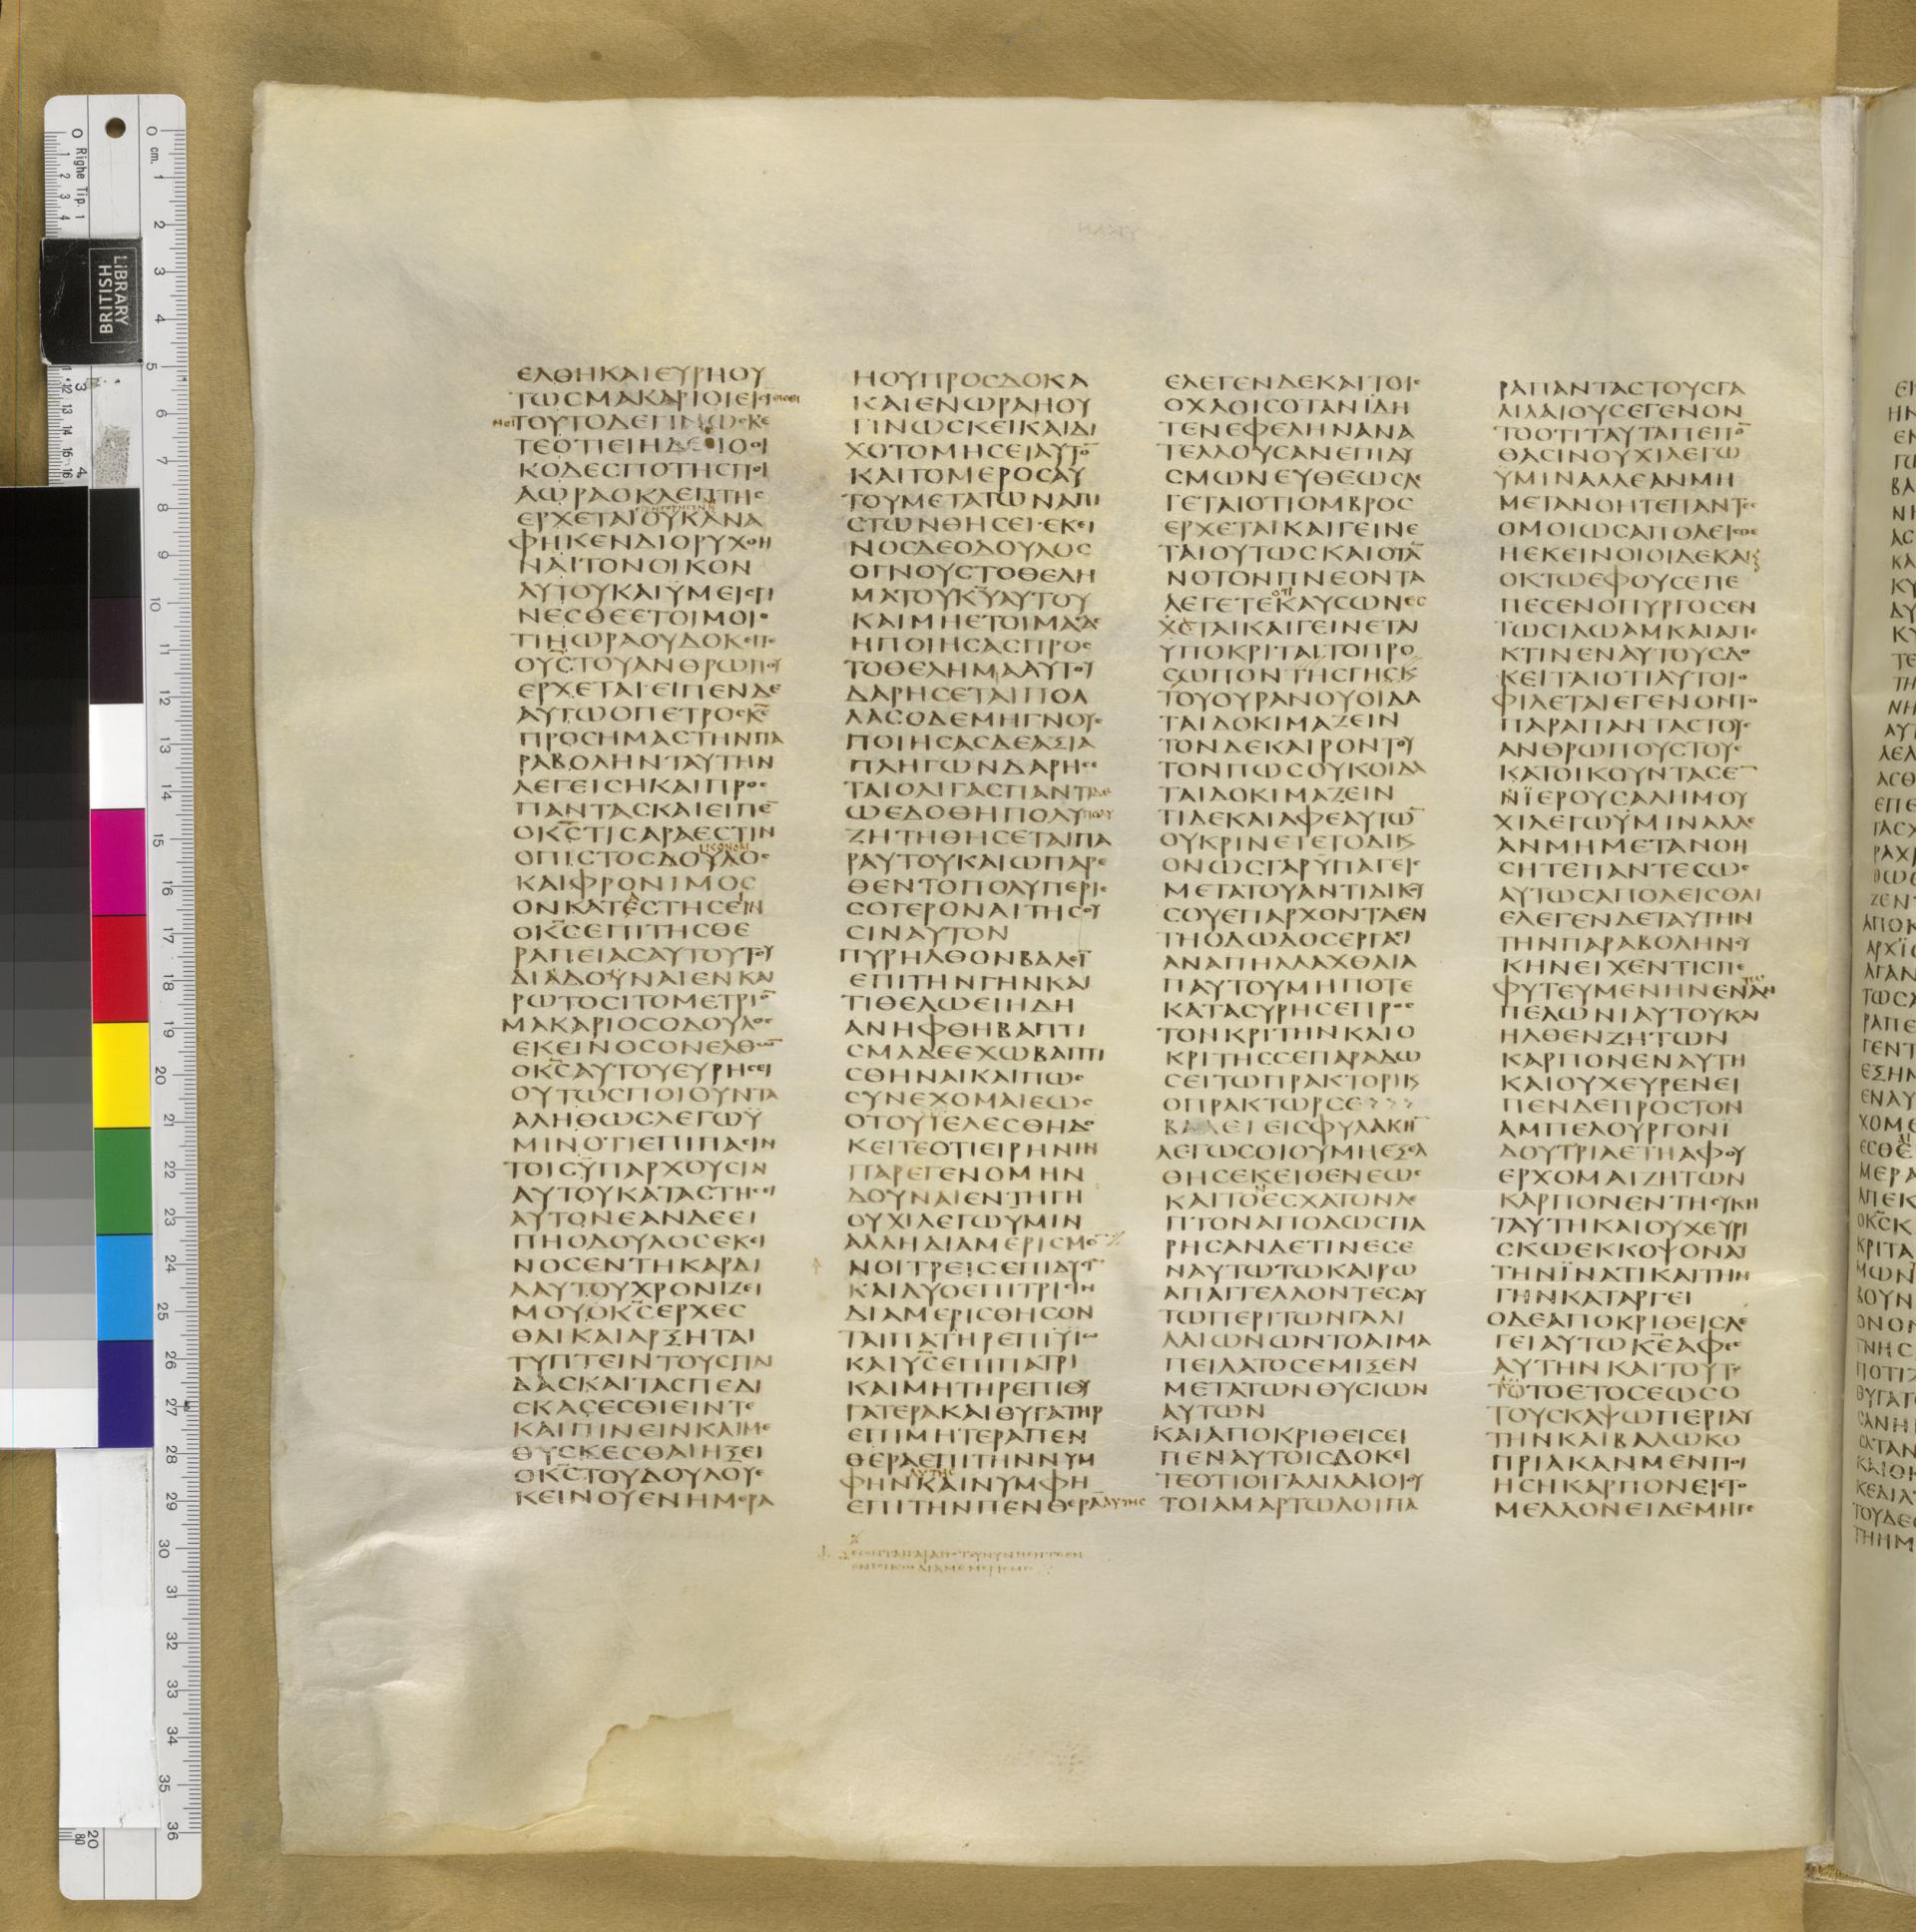 ΕΛΘΗΚΑΙΕΥΡΗΟΥ
ΤΩCΜΑΚΑΡΙΟΙΕΙCΙ
ΤΟΥΤΟΔΕΓΙΝΩCΚΕ
ΤΕΟΤΙΕΙΗΔΕΙΟΟΙ
ΚΟΔΕCΠΟΤΗCΠΟΙ
ΑΩΡΑΟΚΛΕΠΤΗC
ΕΡΧΕΤΑΙΟΥΚΑΝΑ
ΦΗΚΕΝΔΙΟΡΥΧΘΗ
ΝΑΙΤΟΝΟΙΚΟΝ
ΑΥΤΟΥΚΑΙΥΜΕΙCΓΙ
ΝΕCΘΕΕΤΟΙΜΟΙΟ
ΤΙΗΩΡΑΟΥΔΟΚΕΙΤΕ
ΟΥC̅ΤΟΥΑΝΘΡΩΠΟΥ
ΕΡΧΕΤΑΙ·ΕΙΠΕΝΔΕ
ΑΥΤΩΟΠΕΤΡΟCΚ̅Ε̅
ΠΡΟCΗΜΑCΤΗΝΠΑ
ΡΑΒΟΛΗΝΤΑΥΤΗΝ
ΛΕΓΕΙCΗΚΑΙΠΡΟC
ΠΑΝΤΑCΚΑΙΕΙΠΕ̅
ΟΚ̅C̅ΤΙCΑΡΑΕCΤΙΝ
ΟΠΙCΤΟCΔΟΥΛΟC
ΚΑΙΦΡΟΝΙΜΟC
ΟΝΚΑΤΕCΤΗCΕΙΝ
ΟΚ̅C̅ΕΠΙΤΗCΘΕ
ΡΑΠΕΙΑCΑΥΤΟΥΤΟΥ
ΔΙΑΔΟΥΝΑΙΕΝΚΑΙ
ΡΩΤΟCΙΤΟΜΕΤΡΙΟ̅
ΜΑΚΑΡΙΟCΟΔΟΥΛΟC
ΕΚΕΙΝΟCΟΝΕΛΘΩ̅
ΟΚ̅C̅ΑΥΤΟΥΕΥΡΗCΕΙ
ΟΥΤΩCΠΟΙΟΥΝΤΑ
ΑΛΗΘΩCΛΕΓΩΫ
ΜΙΝΟΤΙΕΠΙΠΑCΙΝ
ΤΟΙCΫΠΑΡΧΟΥCΙΝ
ΑΥΤΟΥΚΑΤΑCΤΗCΕΙ
ΑΥΤΟΝΕΑΝΔΕΕΙ
ΠΗΟΔΟΥΛΟCΕΚΕΙ
ΝΟCΕΝΤΗΚΑΡΔΙ
ΑΑΥΤΟΥΧΡΟΝΙΖΕΙ
ΜΟΥΟΚ̅C̅ΕΡΧΕC
ΘΑΙΚΑΙΑΡΞΗΤΑΙ
ΤΥΠΤΕΙΝΤΟΥCΠΑΙ
ΔΑCΚΑΙΤΑCΠΕΔΙ
CΚΑCΕCΘΙΕΙΝΤΕ
ΚΑΙΠΙΝΕΙΝΚΑΙΜΕ
ΘΥCΚΕCΘΑΙΗΞΕΙ
ΟΚ̅C̅ΤΟΥΔΟΥΛΟΥΕ
ΚΕΙΝΟΥΕΝΗΜΕΡΑ
ΗΟΥΠΡΟCΔΟΚΑ
ΚΑΙΕΝΩΡΑΗΟΥ
ΓΙΝΩCΚΕΙΚΑΙΔΙ
ΧΟΤΟΜΗCΕΙΑΥΤΟ̅
ΚΑΙΤΟΜΕΡΟCΑΥ
ΤΟΥΜΕΤΑΤΩΝΑΠΙ
CΤΩΝΘΗCΕΙ·ΕΚΕΙ
ΝΟCΔΕΟΔΟΥΛΟC
ΟΓΝΟΥCΤΟΘΕΛΗ
ΜΑΤΟΥΚ̅Υ̅ΑΥΤΟΥ
ΚΑΙΜΗΕΤΟΙΜΑCΑC
ΗΠΟΙΗCΑCΠΡΟC
ΤΟΘΕΛΗΜΑΑΥΤΟΥ
ΔΑΡΗCΕΤΑΙΠΟΛ
ΛΑCΟΔΕΜΗΓΝΟΥC
ΠΟΙΗCΑCΔΕΑΞΙΑ
ΠΛΗΓΩΝΔΑΡΗCΕ
ΤΑΙΟΛΙΓΑCΠΑΝΤΙΔΕ
ΩΕΔΟΘΗΠΟΛΥΠΟΛΥ
ΖΗΤΗΘΗCΕΤΑΙΠΑ
ΡΑΥΤΟΥΚΑΙΩΠΑΡΕ
ΘΕΝΤΟΠΟΛΥΠΕΡΙC
CΟΤΕΡΟΝΑΙΤΗCΟΥ
CΙΝΑΥΤΟΝ
ΠΥΡΗΛΘΟΝΒΑΛΕΙ̅
ΕΠΙΤΗΝΓΗΝΚΑΙ
ΤΙΘΕΛΩΕΙΗΔΗ
ΑΝΗΦΘΗΒΑΠΤΙ
CΜΑΔΕΕΧΩΒΑΠΤΙ
CΘΗΝΑΙΚΑΙΠΩC
CΥΝΕΧΟΜΑΙΕΩC
ΟΤΟΥΤΕΛΕCΘΗΔΟ
ΚΕΙΤΕΟΤΙΕΙΡΗΝΗΝ
ΠΑΡΕΓΕΝΟΜΗΝ
ΔΟΥΝΑΙΕΝΤΗΓΗ
ΟΥΧΙΛΕΓΩΥΜΙΝ
ΑΛΛΗΔΙΑΜΕΡΙCΜΟ̅
ΝΟΙΤΡΕΙCΕΠΙΔΥCΙ̅
ΚΑΙΔΥΟΕΠΙΤΡΙCΙΝ
ΔΙΑΜΕΡΙCΘΗCΟΝ
ΤΑΙΠΑΤΗΡΕΠΙΥΙΩ
ΚΑΙΥ̅C̅ΕΠΙΠΑΤΡΙ
ΚΑΙΜΗΤΗΡΕΠΙΘΥ
ΓΑΤΕΡΑΚΑΙΘΥΓΑΤΗΡ
ΕΠΙΜΗΤΕΡΑΠΕΝ
ΘΕΡΑΕΠΙΤΗΝΝΥΜ
ΑΥΤΗC
ΦΗΝΚΑΙΝΥΜΦΗ
ΕΠΙΤΗΝΠΕΝΘΕΡΑ̅ΑΥΤΗC
ΕΛΕΓΕΝΔΕΚΑΙΤΟΙC
ΟΧΛΟΙCΟΤΑΝΙΔΗ
ΤΕΝΕΦΕΛΗΝΑΝΑ
ΤΕΛΛΟΥCΑΝΕΠΙΔΥ
CΜΩΝΕΥΘΕΩCΛΕ
ΓΕΤΑΙΟΤΙΟΜΒΡΟC
ΕΡΧΕΤΑΙΚΑΙΓΕΙΝΕ
ΤΑΙΟΥΤΩCΚΑΙΟΤΑ̅
ΝΟΤΟΝΠΝΕΟΝΤΑ
ΟΤΙ
ΛΕΓΕΤΕΚΑΥCΩΝΕC
ΧΕΤΑΙΚΑΙΓΕΙΝΕΤΑΙ
ΥΠΟΚΡΙΤΑΙΤΟΠΡΟ
CΩΠΟΝΤΗCΓΗCΚ
ΤΟΥΟΥΡΑΝΟΥΟΙΔΑ
ΤΑΙΔΟΚΙΜΑΖΕΙΝ
ΤΟΝΔΕΚΑΙΡΟΝΤΟΥ
ΤΟΝΠΩCΟΥΚΟΙΔΑ
ΤΑΙΔΟΚΙΜΑΖΕΙΝ
ΤΙΔΕΚΑΙΑΦΕΑΥΤΩ̅
ΟΥΚΡΙΝΕΤΕΤΟΔΙΚ
ΟΝΩCΓΑΡΫΠΑΓΕΙC
ΜΕΤΑΤΟΥΑΝΤΙΔΙΚΟΥ
CΟΥΕΠΑΡΧΟΝΤΑΕΝ
ΤΗΟΔΩΔΟCΕΡΓΑCΙ
ΑΝΑΠΗΛΛΑΧΘΑΙΑ
ΠΑΥΤΟΥΜΗΠΟΤΕ
ΚΑΤΑCΥΡΗCΕΠΡΟC
ΤΟΝΚΡΙΤΗΝΚΑΙΟ
ΚΡΙΤΗCCΕΠΑΡΑΔΩ
CΕΙΤΩΠΡΑΚΤΟΡΙΚ
ΟΠΡΑΚΤΩΡCΕ>>>
ΒΑΛΕΙΕΙCΦΥΛΑΚΗ̅
ΛΕΓΩCΟΙΟΥΜΗΕΞΕΛ
ΘΗCΕΚΕΙΘΕΝΕΩC
ΚΑΙΤΟΕCΧΑΤΟΝΛΕ
ΠΤΟΝΑΠΟΔΩCΠΑ
ΡΗCΑΝΔΕΤΙΝΕCΕ
ΝΑΥΤΩΤΩΚΑΙΡΩ
ΑΠΑΓΓΕΛΛΟΝΤΕCΑΥ
ΤΩΠΕΡΙΤΩΝΓΑΛΙ
ΛΑΙΩΝΩΝΤΟΑΙΜΑ
ΠΕΙΛΑΤΟCΕΜΙΞΕΝ
ΜΕΤΑΤΩΝΘΥCΙΩΝ
ΑΥΤΩΝ
ΚΑΙΑΠΟΚΡΙΘΕΙCΕΙ
ΠΕΝΑΥΤΟΙCΔΟΚΕΙ
ΤΕΟΤΙΟΙΓΑΛΙΛΑΙΟΙΟΥ
ΤΟΙΑΜΑΡΤΩΛΟΙΠΑ
ΡΑΠΑΝΤΑCΤΟΥCΓΑ
ΛΙΛΑΙΟΥCΕΓΕΝΟΝ
ΤΟΟΤΙΤΑΥΤΑΠΕΠΟ̅
ΘΑCΙΝΟΥΧΙΛΕΓΩ
ΥΜΙΝΑΛΛΕΑΝΜΗ
ΜΕΤΑΝΟΗΤΕΠΑΝΤΕC
ΟΜΟΙΩCΑΠΟΛΕΙCΘΕ
ΗΕΚΕΙΝΟΙΟΙΔΕΚΑΙ
ΟΚΤΩΕΦΟΥCΕΠΕ
ΠΕCΕΝΟΠΥΡΓΟCΕΝ
ΤΩCΙΛΩΑΜΚΑΙΑΠΕ
ΚΤΙΝΕΝΑΥΤΟΥCΔΟ
ΚΕΙΤΑΙΟΤΙΑΥΤΟΙΟ
ΦΙΛΕΤΑΙΕΓΕΝΟΝΤΟ
ΠΑΡΑΠΑΝΤΑCΤΟΥC
ΑΝΘΡΩΠΟΥCΤΟΥC
ΚΑΤΟΙΚΟΥΝΤΑCΕ̅
ΝΪΕΡΟΥCΑΛΗΜΟΥ
ΧΙΛΕΓΩΫΜΙΝΑΛΛΕ
ΑΝΜΗΜΕΤΑΝΟΗ
CΗΤΕΠΑΝΤΕCΩC
ΑΥΤΩCΑΠΟΛΕΙCΘΑΙ
ΕΛΕΓΕΝΔΕΤΑΥΤΗΝ
ΤΗΝΠΑΡΑΒΟΛΗΝCΥ
ΚΗΝΕΙΧΕΝΤΙCΠΕ
ΦΥΤΕΥΜΕΝΗΝΕΝΑΜ
ΠΕΛΩΝΙΑΥΤΟΥΚΑΙ
ΗΛΘΕΝΖΗΤΩΝ
ΚΑΡΠΟΝΕΝΑΥΤΗ
ΚΑΙΟΥΧΕΥΡΕΝΕΙ
ΠΕΝΔΕΠΡΟCΤΟΝ
ΑΜΠΕΛΟΥΡΓΟΝΪ
ΔΟΥΤΡΙΑΕΤΗΑΦΟΥ
ΕΡΧΟΜΑΙΖΗΤΩΝ
ΚΑΡΠΟΝΕΝΤΗCΥΚΗ
ΤΑΥΤΗΚΑΙΟΥΧΕΥΡΙ
CΚΩΕΚΚΟΨΟΝΑΥ
ΤΗΝΪΝΑΤΙΚΑΙΤΗΝ
ΓΗΝΚΑΤΑΡΓΕΙ
ΟΔΕΑΠΟΚΡΙΘΕΙCΛΕ
ΓΕΙΑΥΤΩΚ̅Ε̅ΑΦΕC
ΑΥΤΗΝΚΑΙΤΟΥΤΟ
ΤΟΤΟΕΤΟCΕΩCΟ
ΤΟΥCΚΑΨΩΠΕΡΙΑΥ
ΤΗΝΚΑΙΒΑΛΩΚΟ
ΠΡΙΑΚΑΝΜΕΝΠΟΙ
ΗCΗΚΑΡΠΟΝΕΙCΤΟ
ΜΕΛΛΟΝΕΙΔΕΜΗΓΕ
BRITISH
LIBRARY
Righe Tip. 1
cm.